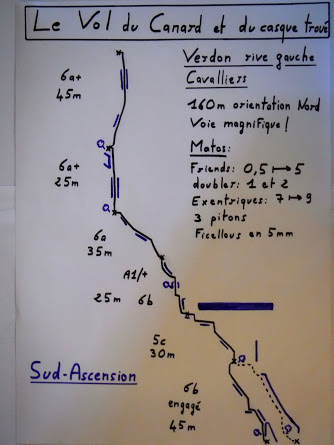 Le Vol du Canard et du casque trouvé
Verdon rive gauche
Cavalliers
160m orientation Nord
Voie magnifique!
Matos:
Friends: 0,5 ↦ 5
doubler: 1 et 2
Exentriques: 7 ↦ 9
3 pitons
Ficellous en 5mm
6a+
45m
6a+
25m
6a
35m
A1/+
25m 6b
5c
30m
6b
engagé
45m
Sud-Ascension